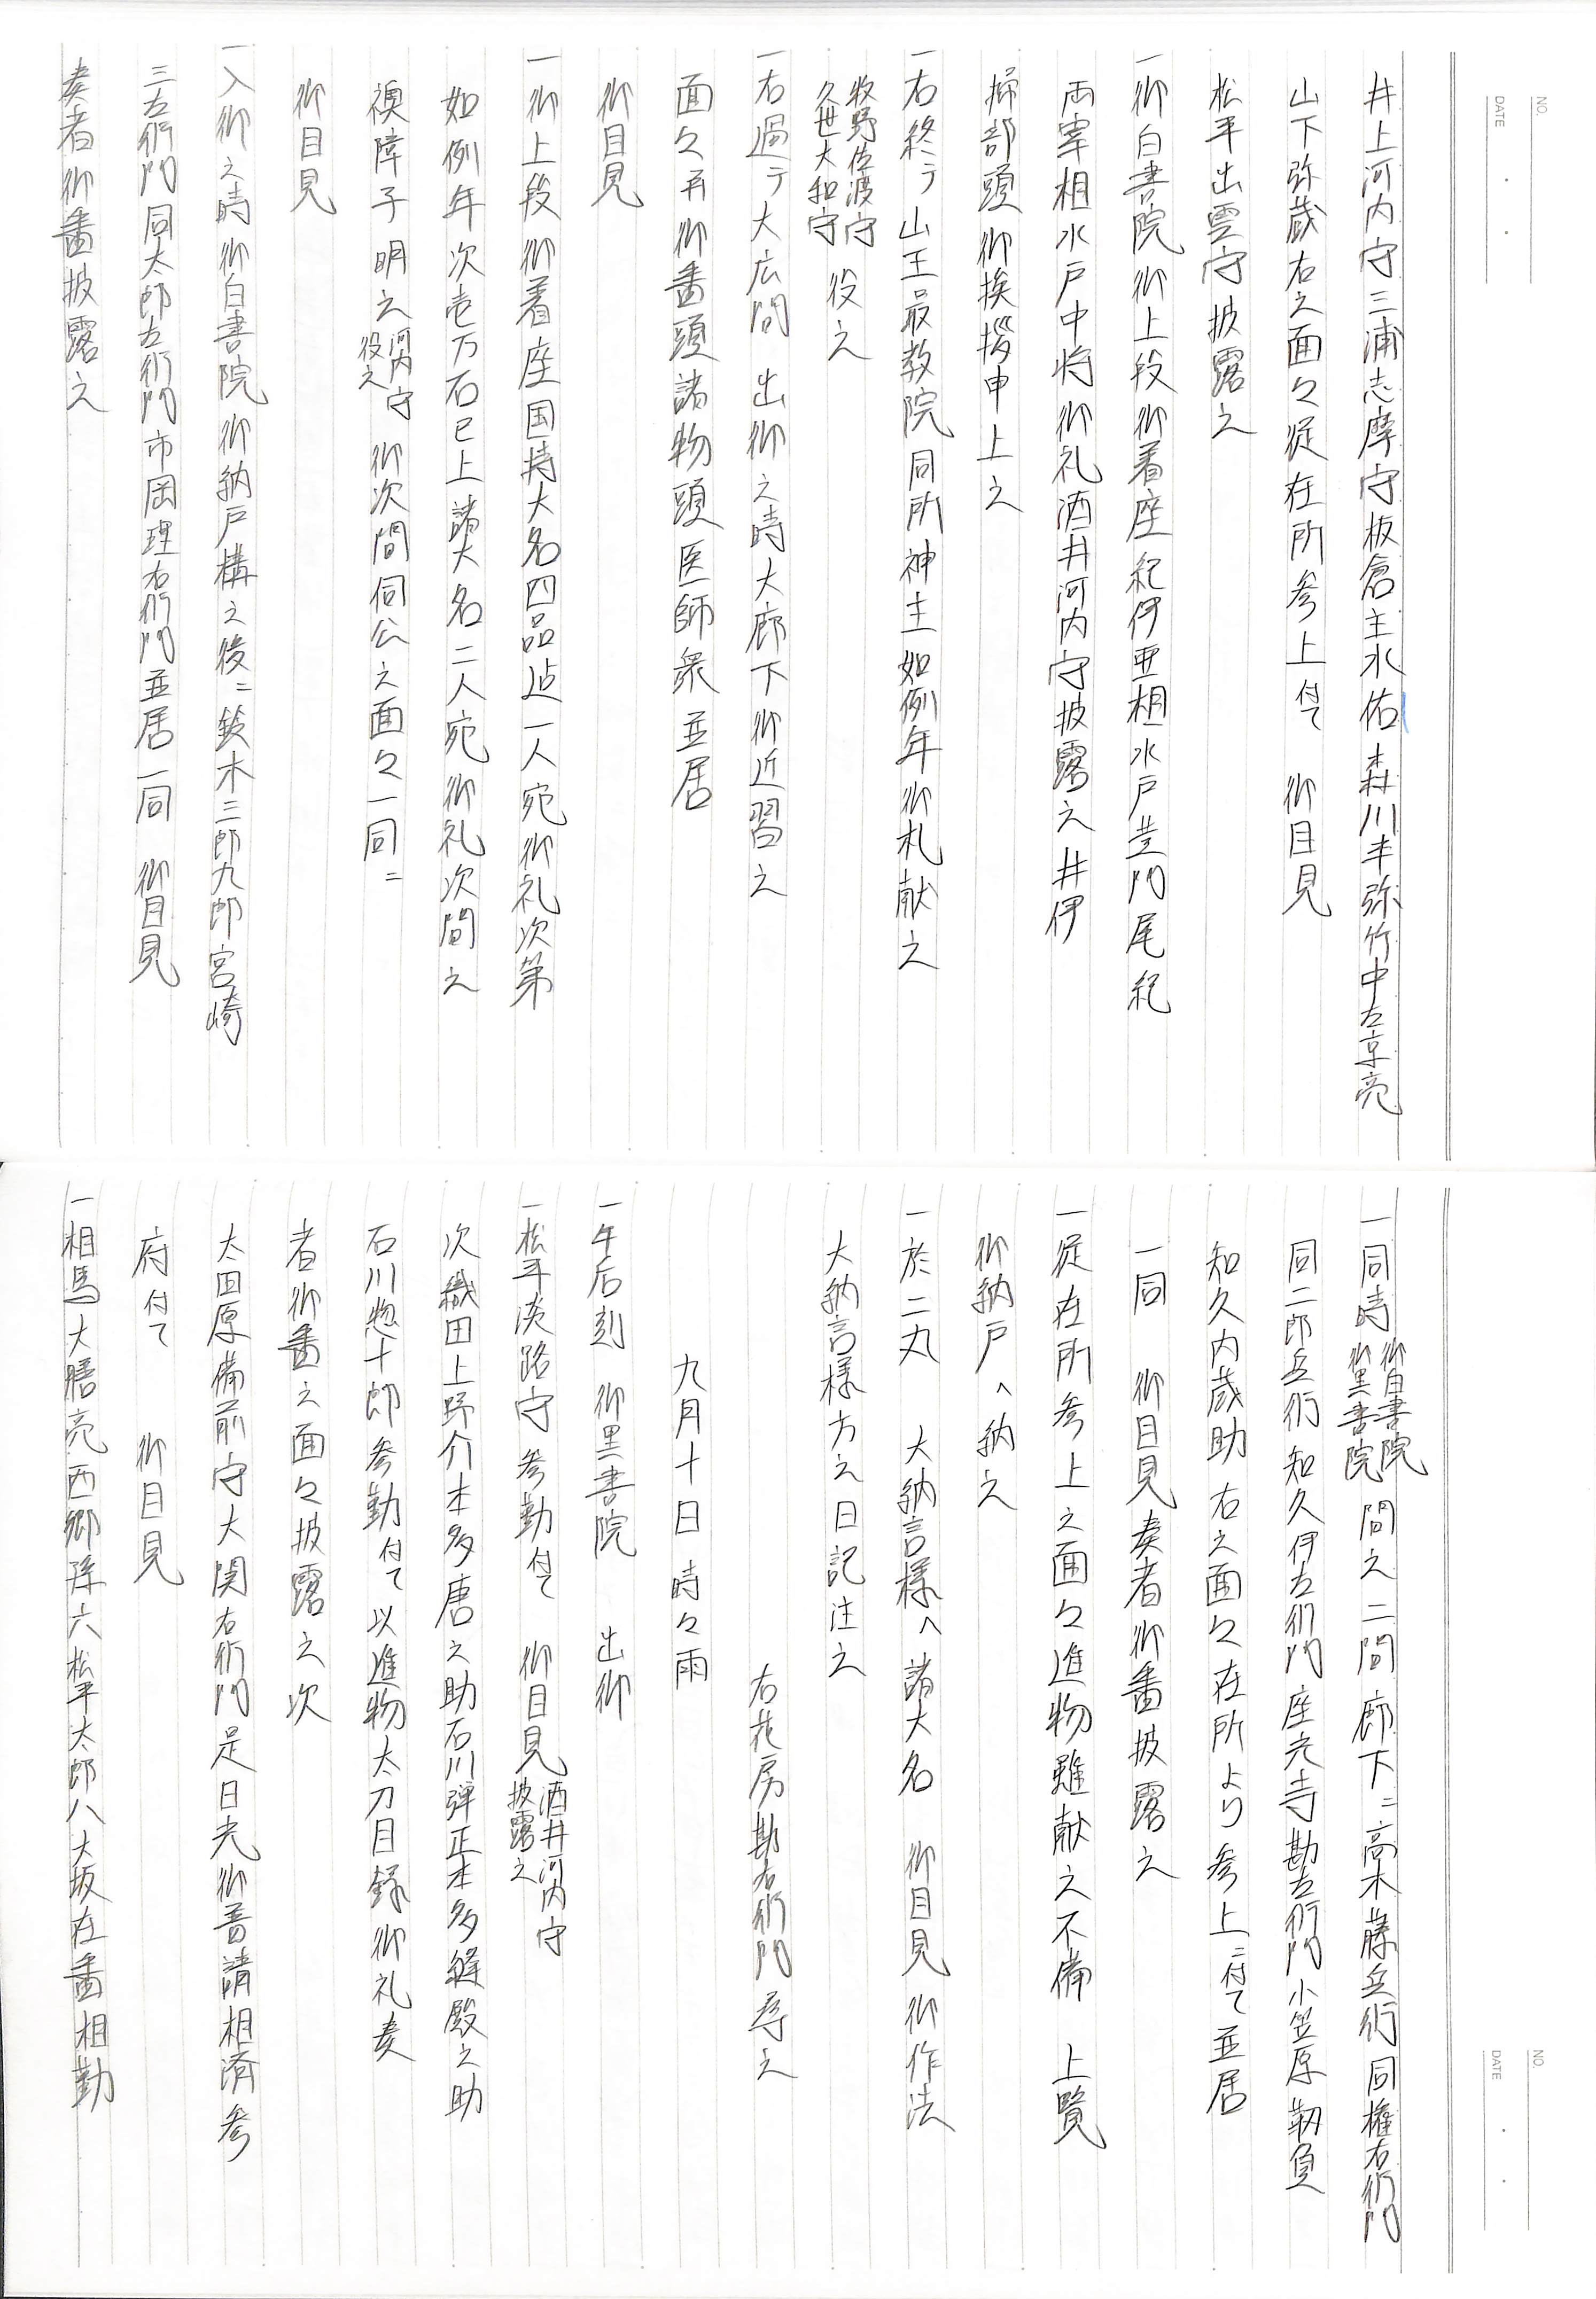 NO.
DATE
井上河内守三浦志摩守板倉主水佑森川半弥竹中左京亮
山下弥蔵右之面々従在所参上付て 御目見
松平出雲守披露之
一御白書院御上段御着座紀伊亜相水戸黄門尾紀
両宰相水戸中将御礼酒井河内守披露之井伊
掃部頭御挨拶申上之
一右終テ山王最教院同所神主如例年御札献之
牧野佐渡守
久世大和守 役之
一右過テ大広間 出御之時大廊下御近習之
面々并御番頭諸物頭医師衆並居
御目見
一御上段御着座国持大名四品迠一人宛御礼次第
如例年次壱万石已上諸大名二人宛御礼次間之
襖障子明之 河内守
役之 御次間伺公之面々一同ニ
御目見
一入御之時御白書院御納戸構之後ニ鈴木三郎九郎宮崎
三左衛門同太郎左衛門市岡理右衛門並居一同 御目見
奏者御番披露之
NO.
DATE
一同時 御白書院
御黒書院 間之二間廊下ニ高木藤兵衛同権右衛門
同二郎兵衛知久伊左衛門座光寺勘左衛門小笠原靱負
知久内蔵助右之面々在所より参上ニ付て並居
一同 御目見奏者御番披露之
一従在所参上之面々進物雖献之不備 上覧
御納戸へ納之
一於二丸 大納言様へ諸大名 御目見御作法
大納言様方之日記注之
右花房勘右衛門尋之
九月十日時々雨
一午后刻 御黒書院 出御
一松平淡路守参勤付て 御目見 酒井河内守
披露之
次織田上野介本多唐之助石川弾正本多縫殿之助
石川惣十郎参勤付て以進物太刀目録御礼奏
者御番之面々披露之次
太田原備前守大関右衛門是日光御普請相済参
府付て 御目見
一相馬大膳亮西郷孫六松平太郎八大坂在番相勤